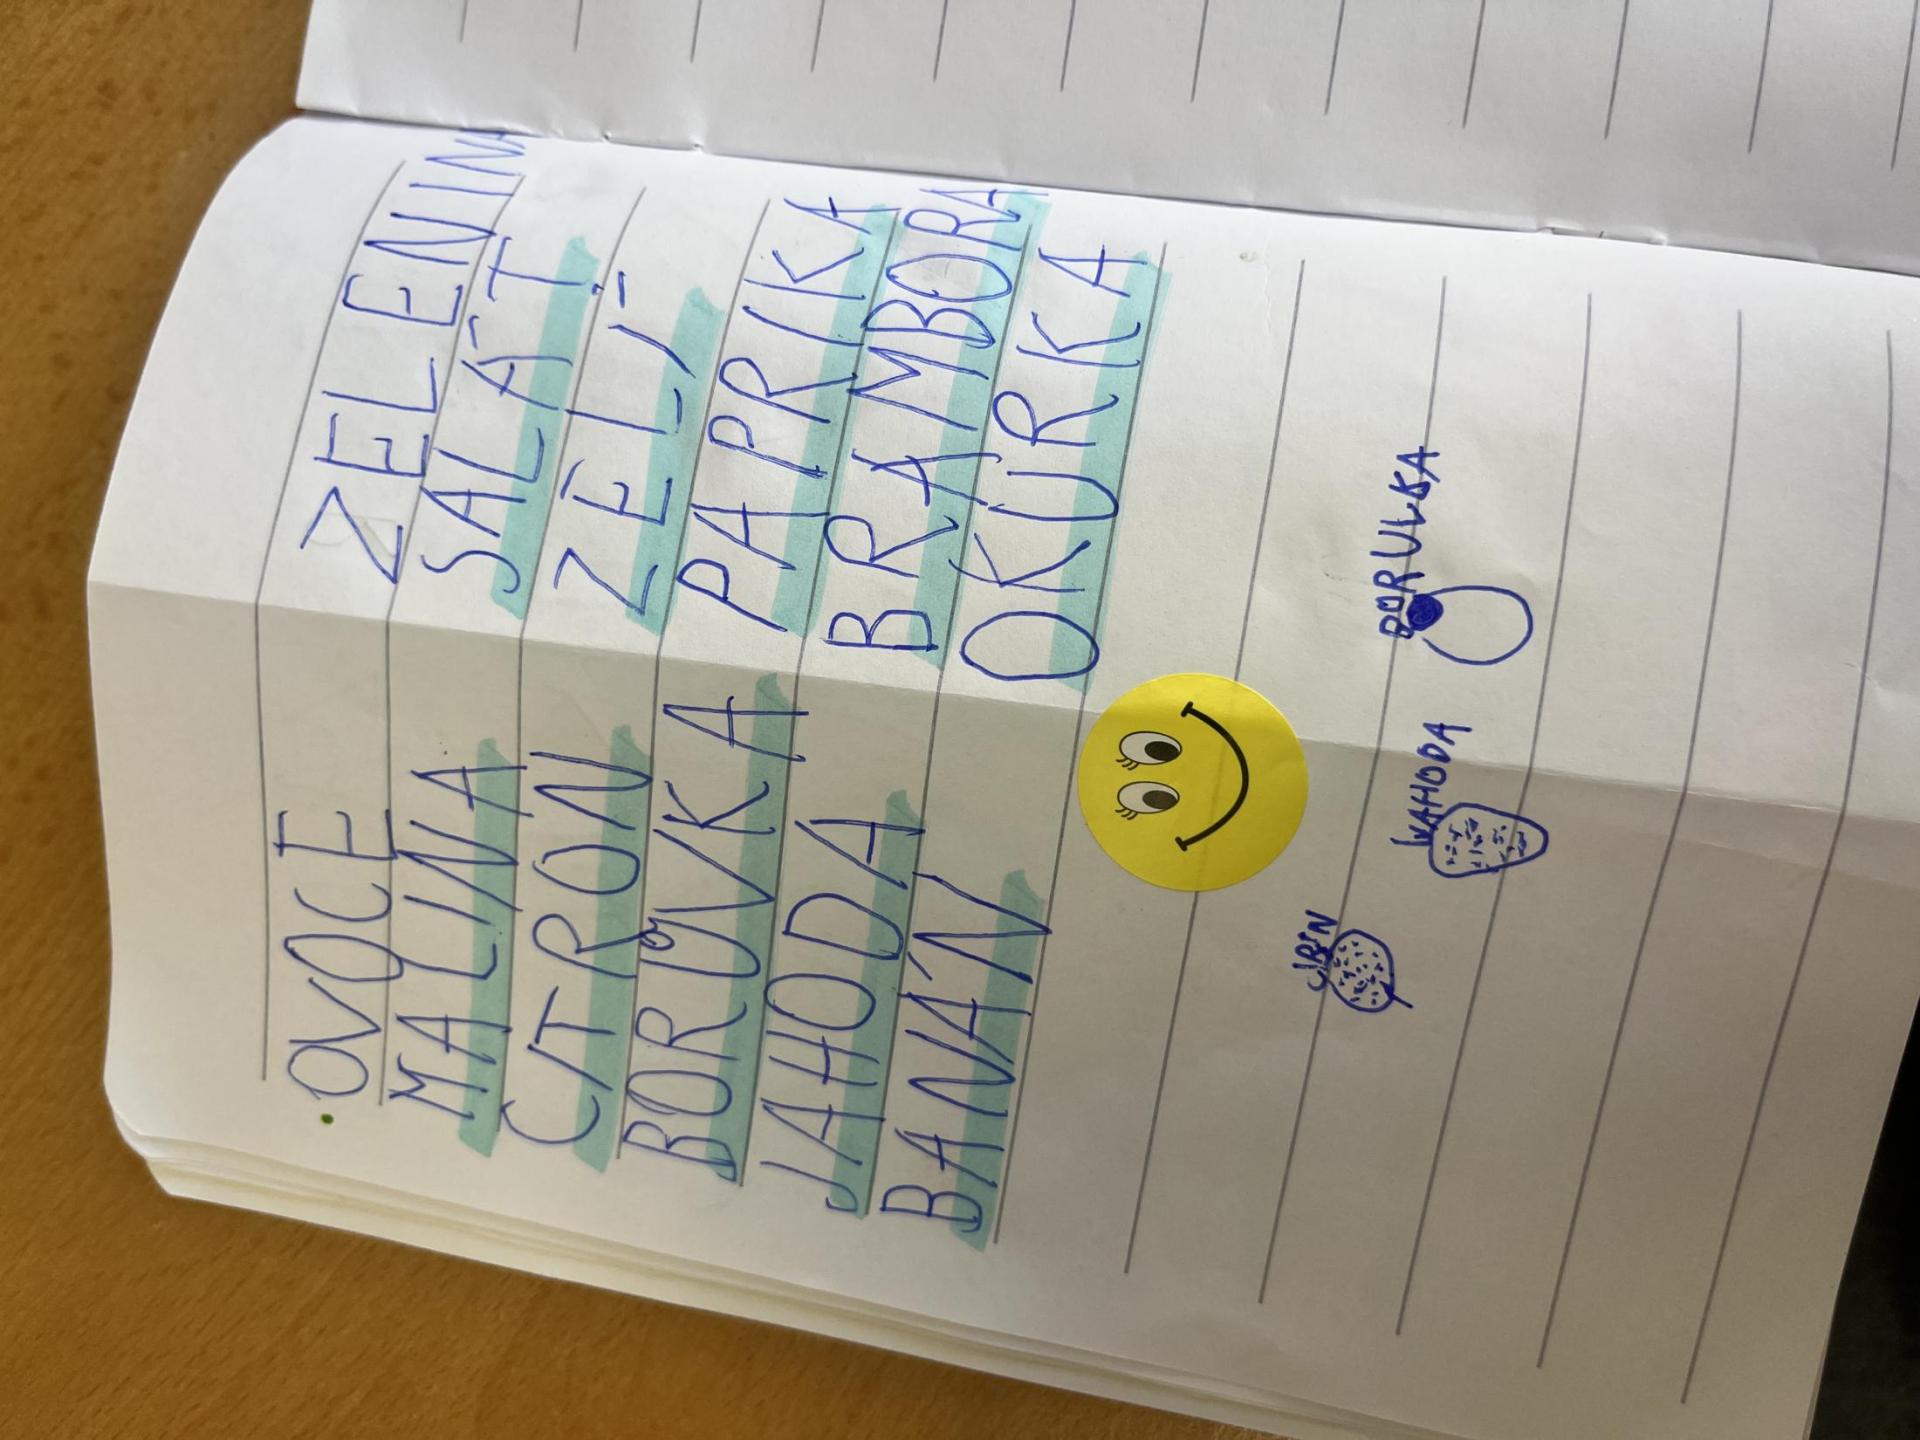 OVOCE ZELENINA
MALINA SALÁT
CITRON ZELÍ
BORŮVKA PAPRIKA
JAHODA BRAMBORA
BANÁN OKURKA
WAHODA